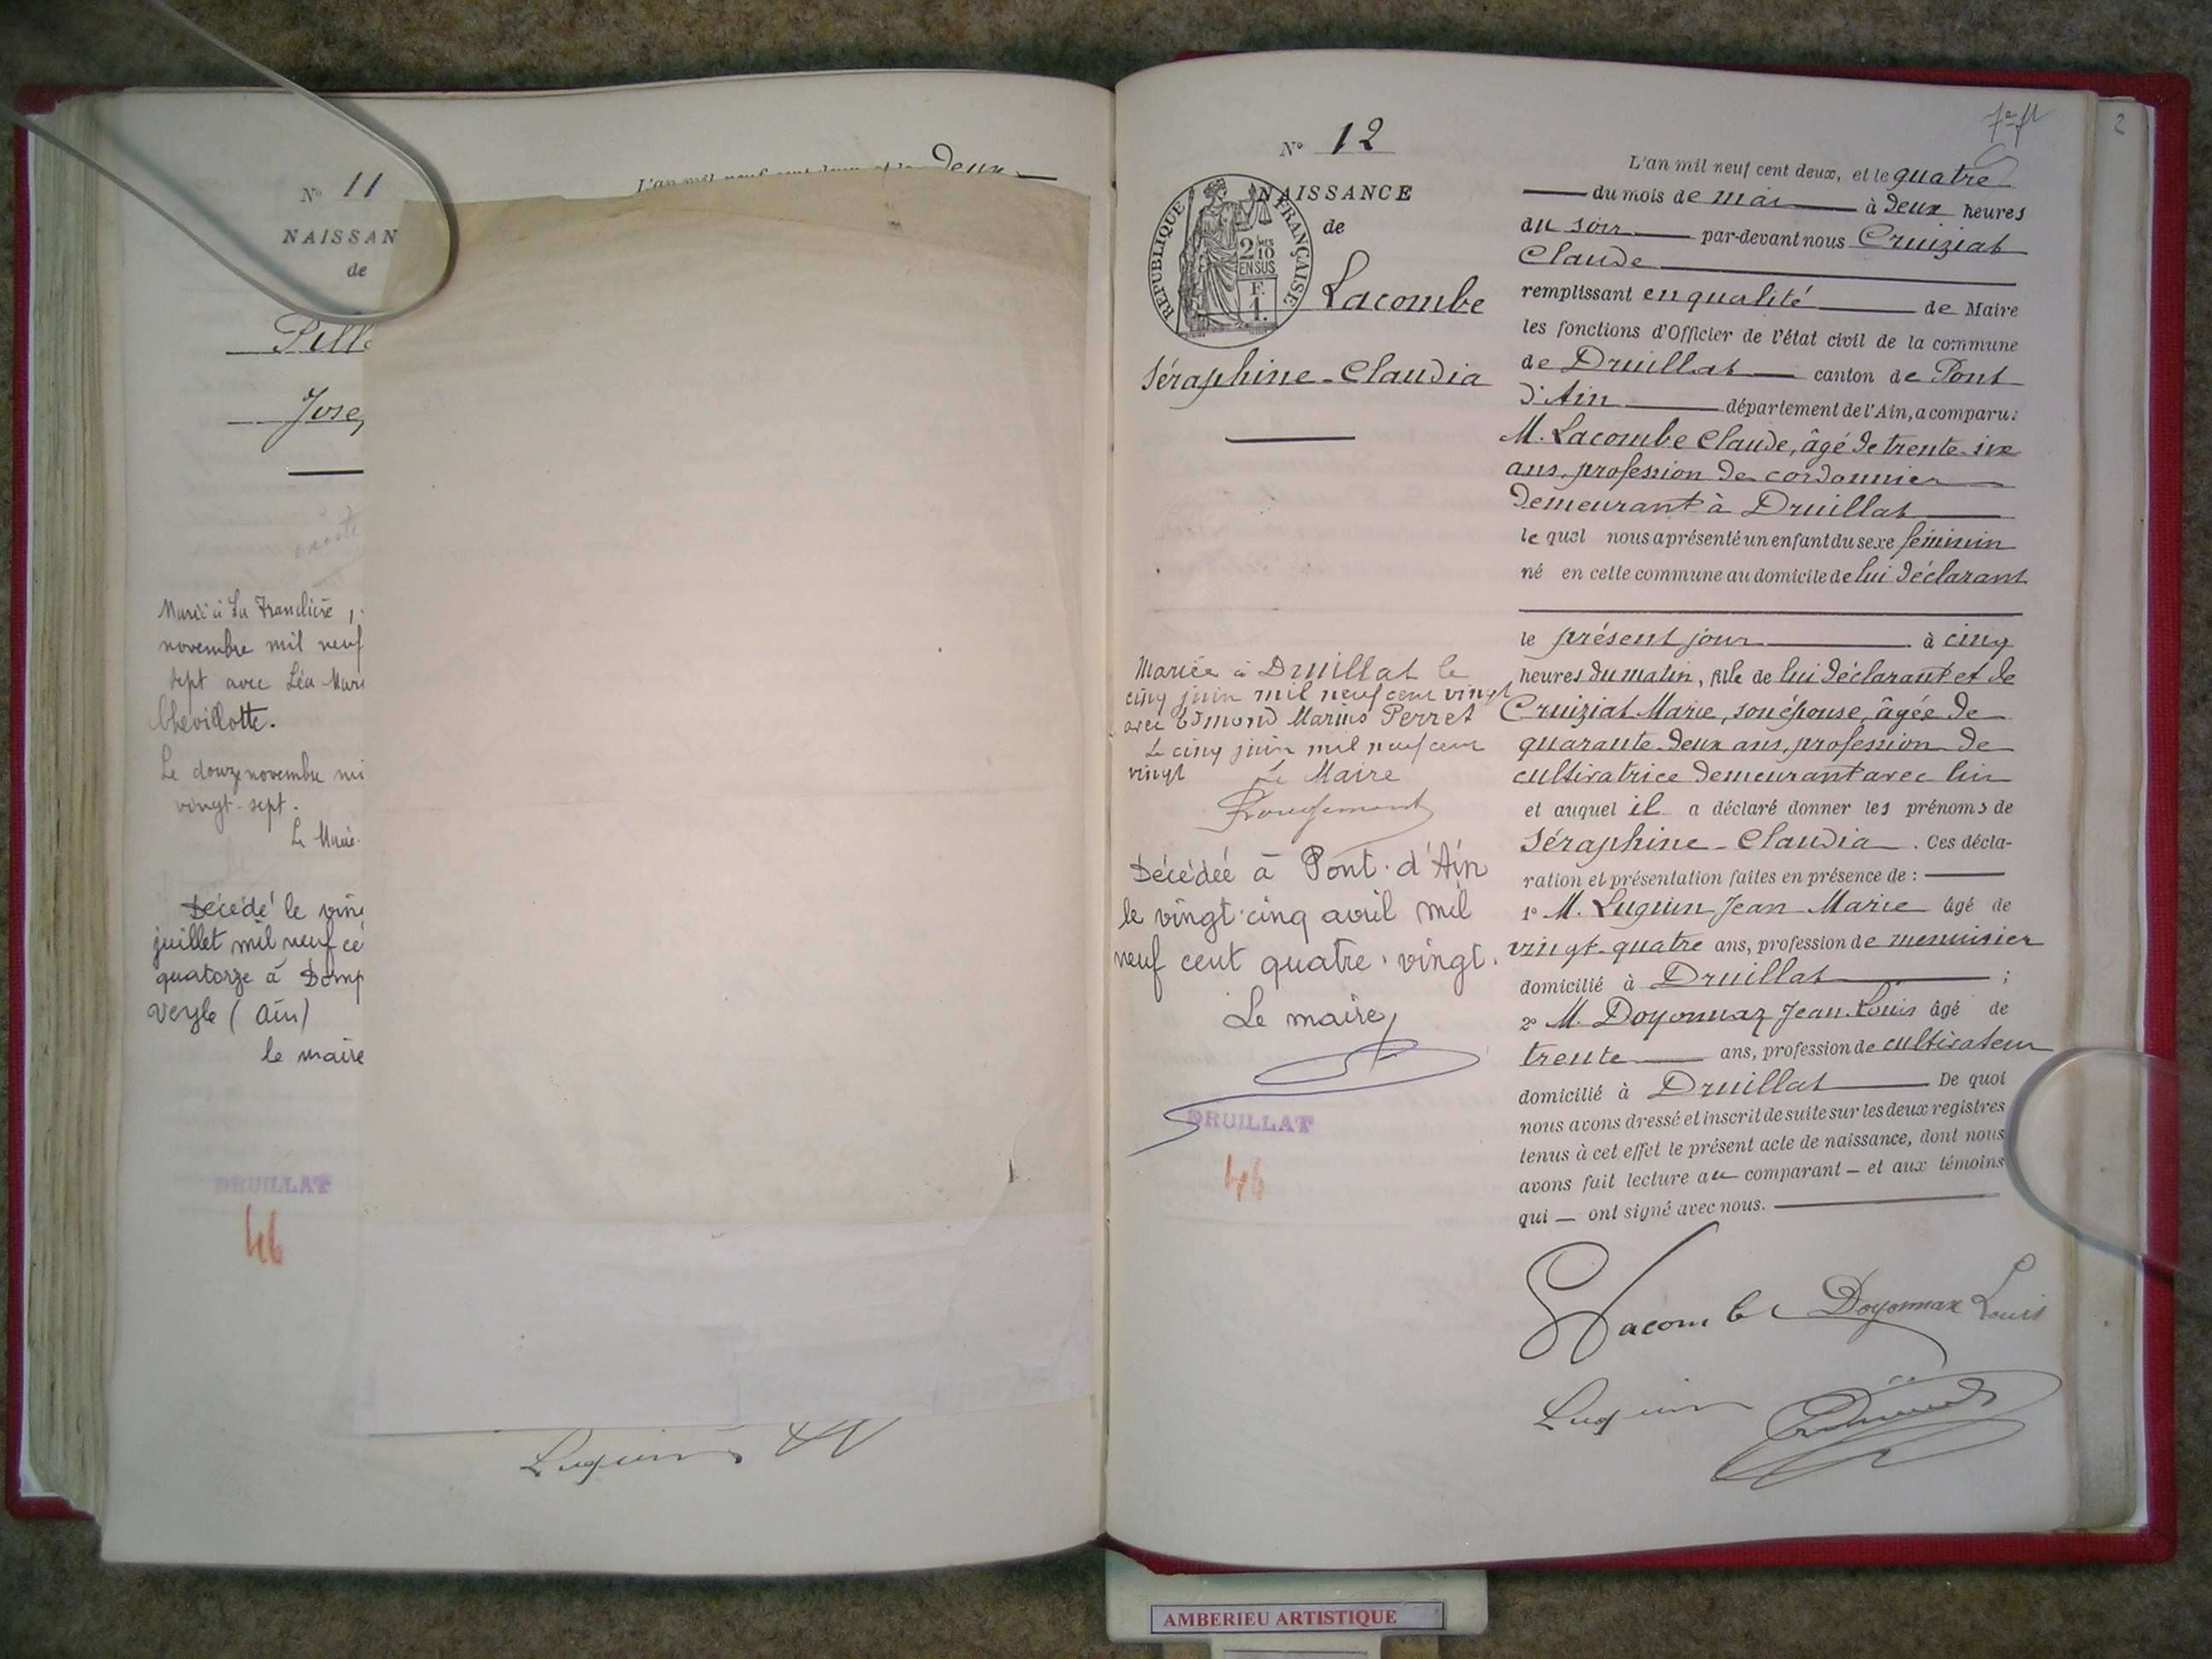 N° 11
NAISSAN
de
Pill
Jose
Marié à La Tranclière,
novembre mil neuf
sept avec Léa Mari
Chevillotte.
Le douze novembre mi
vingt-sept.
Le Maire
Décédé le ving
juillet mil neuf ce
quatorze à Domp
Veyle (Ain)
le maire
DRUILLAT
46
L'an mil neuf cent deux et le Deux
Luquin
N° 12
NAISSANCE
de
REPUBLIQUE FRANÇAISE
2/10
EN SUS
F.
1.
Lacombe
Séraphine-Claudia
Mariée à Druillat le
cinq juin mil neuf cent vingt
avec Edmond Marius Perret
Le cinq juin mil neuf cent
vingt Le Maire
Rougemont
Décédée à Pont-d'Ain
le vingt-cinq avril mil
neuf cent quatre-vingt.
Le maire,
DRUILLAT
46
2
L'an mil neuf cent deux, et le quatre
du mois de mai à deux heures
du soir par-devant nous Cruiziat
Claude
remplissant en qualité de Maire
les fonctions d'Officier de l'état civil de la commune
de Druillat canton de Pont
d'Ain département de l'Ain, a comparu:
M. Lacombe Claude, âgé de trente-six
ans, profession de cordonnier
demeurant à Druillat
lequel nous a présenté un enfant du sexe féminin
né en cette commune au domicile de lui déclarant
le présent jour à cinq
heures du matin, fille de lui déclarant et de
Cruiziat Marie, son épouse, âgée de
quarante-deux ans, profession de
cultivatrice demeurant avec lui
et auquel il a déclaré donner les prénoms de
Séraphine-Claudia. Ces décla-
ration et présentation faites en présence de :
1° M. Luquin Jean Marie âgé de
vingt-quatre ans, profession de menuisier
domicilié à Druillat ;
2° M. Doyonnax Jean-Louis âgé de
trente ans, profession de cultivateur
domicilié à Druillat De quoi
nous avons dressé et inscrit de suite sur les deux registres
tenus à cet effet le présent acte de naissance, dont nous
avons fait lecture au comparant — et aux témoins
qui — ont signé avec nous.
Lacombe Doyonnax Louis
Luquin
AMBERIEU ARTISTIQUE